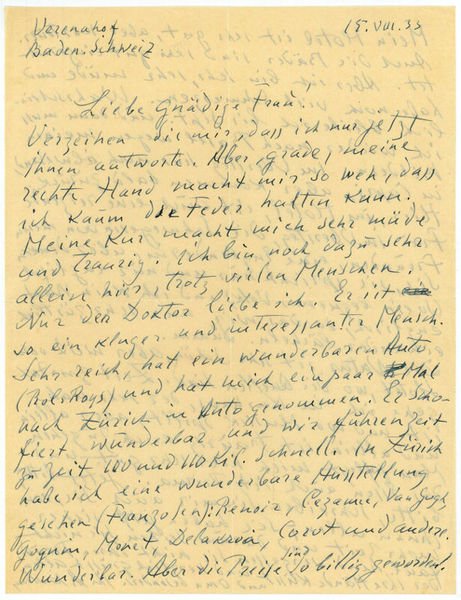 Verenahof
Baden. Schweiz
15. VIII. 33
Liebe Gnädige Frau.
Verzeihen sie mir, dass ich nur jetzt
Ihnen antworte. Aber, grade, meine
rechte Hand macht mir so weh, dass
ich kaum die Feder halten kann.
Meine Kur macht mich sehr müde
und traurig. Ich bin noch dazu sehr
allein hier, trotz vielen Menschen.
Nur den Doktor liebe ich. Er ist
so ein kluger und interessanter Mensch.
Sehr reich, hat ein wunderbaren Auto,
(RolsRoys) und hat mich ein paar Mal
nach Zürich in Auto genommen. Er scho-
fiert wunderbar und wir führen zeit
zu zeit 100 und 110 Kil. schnell. In Zürich
habe ich eine wunderbare Ausstellung
gesehen (Franzosen): Renoir, Cezanne, Van Gogh,
Gognin, Monet, Delakroa, Corot und andere.
Wunderbar. Aber die Preise sind so billig geworden!